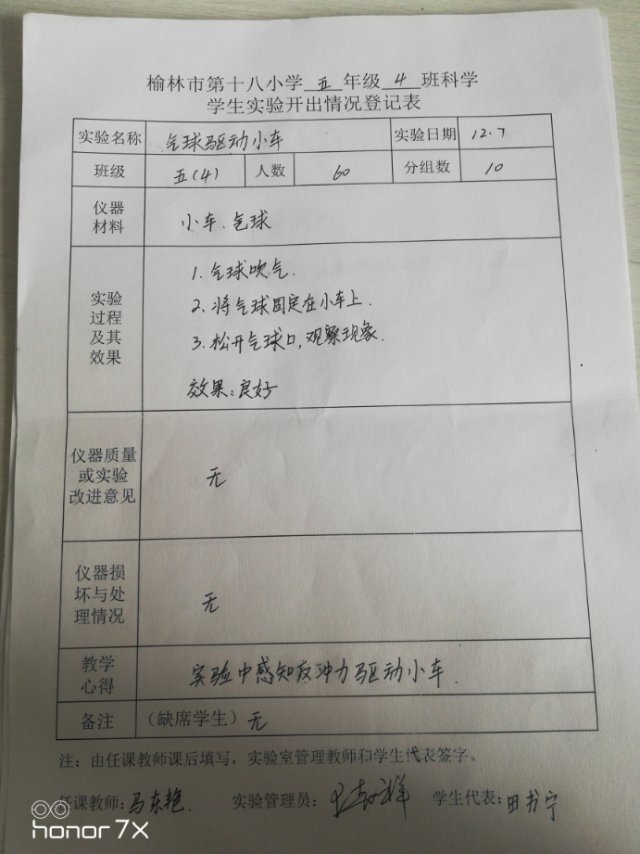 榆林市第十八小学 五 年级 4 班科学
学生实验开出情况登记表
实验名称 气球驱动小车 实验日期 12.7
班级 五(4) 人数 60 分组数 10
仪器
材料
小车.气球
实验
过程
及其
效果
1.气球吹气.
2.将气球固定在小车上.
3.松开气球口,观察现象.
效果:良好
仪器质量
或实验
改进意见
无
仪器损
坏与处
理情况
无
教学
心得
实验中感知反冲力驱动小车.
备注 (缺席学生) 无
注:由任课教师课后填写,实验室管理教师和学生代表签字。
任课教师:马东艳. 实验管理员: 学生代表:田书宁
honor 7X